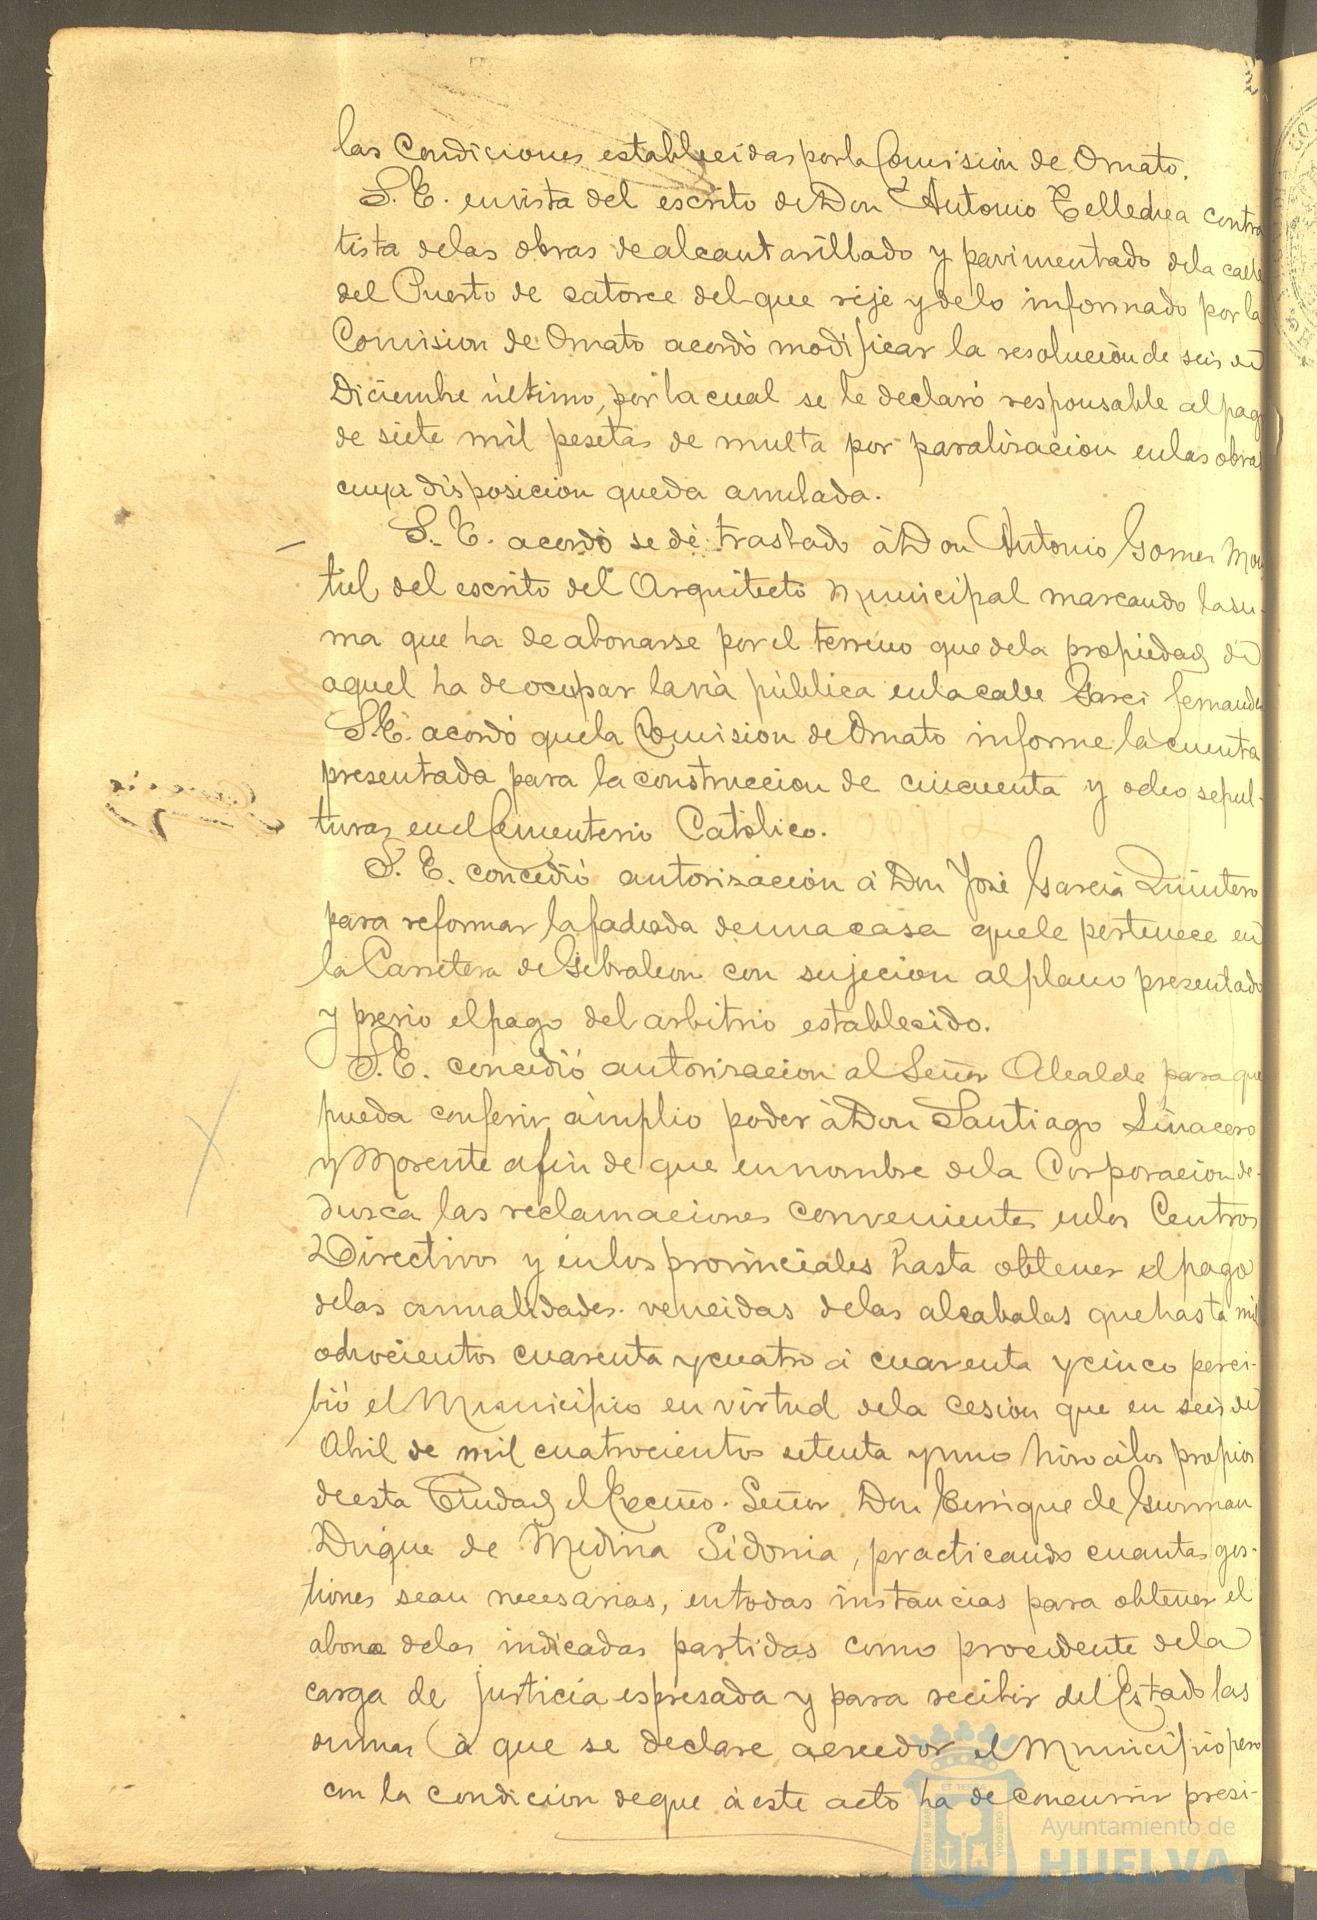 las condiciones establecidas por la Comision de Ornato.
S. E. en vista del escrito de Don Antonio Telledrea contra
tista de las obras de alcantarillado y pavimentado de la calle
del Puerto de catorce del que rije y de lo informado por la
Comision de Ornato acordó modificar la resolucion de seis de
Diciembre último, por la cual se le declaró responsable al pago
de siete mil pesetas de multa por paralizacion en las obras
cuya disposicion queda anulada.
S. E. acordó se dé traslado á Don Antonio Gomez Mon
tiel del escrito del Arquitecto Municipal marcando la su-
ma que ha de abonarse por el terreno que de la propiedad de
aquel ha de ocupar la via pública en la calle Garci Fernandez
S. E. acordó que la Comision de Ornato informe la cuenta
presentada para la construccion de cincuenta y ocho sepul-
turas en el Cementerio Católico.
S. E. concedió autorizacion á Don José Garcia Quintero
para reformar la fachada de una casa que le pertenece en
la Carretera de Gibraleon con sujecion al plano presentado
y previo el pago del arbitrio establecido.
S. E. concedió autorizacion al Señor Alcalde para que
pueda conferir ámplio poder á Don Santiago Linacero
y Morente a fin de que en nombre de la Corporacion de-
duzca las reclamaciones convenientes en los Centros
Directivos y en los provinciales hasta obtener el pago
de las anualidades vencidas de las alcabalas que hasta mil
ochocientos cuarenta y cuatro á cuarenta y cinco perci-
bió el Municipio en virtud de la cesion que en seis de
Abril de mil cuatrocientos setenta y uno hizo á los propios
de esta Ciudad el Excmo. Señor Don Enrique de Guzman
Duque de Medina Sidonia, practicando cuantas ges-
tiones sean necesarias, en todas instancias para obtener el
abono de las indicadas partidas como procedente de la
carga de justicia espresada y para recibir del Estado las
sumas á que se declare acreedor el Municipio pero
con la condicion de que á este acto ha de concurrir preci-
Ayuntamiento de
HUELVA